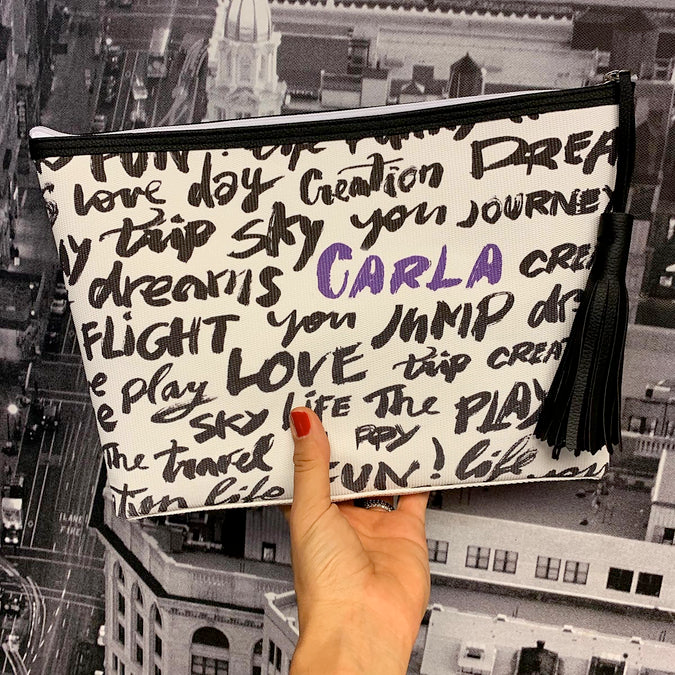 FUN! Life Funny
Love day Creation DREA
trip sky you JOURNEY
dreams CARLA CREA
FLIGHT you JUMP dr
play LOVE trip CREAT
SKY LiFE The PLAY
The travel
tion life FUN! life you